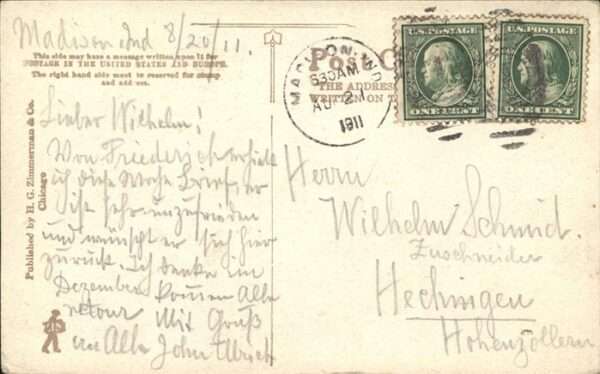 Madison Ind 8/20/11.
This side may have a message written upon it for
POSTAGE IN THE UNITED STATES AND EUROPE.
The right hand side must be reserved for stamp
and address.
Published by H. G. Zimmerman & Co.
Chicago
Lieber Wilhelm!
Von Friederich erhielt
ich diese Woche Brief, er
ist sehr unzufrieden
und wünscht er sich hier
zurück. Ich denke im
Dezember kommen Alle
retour Mit Gruß
an Alle John Ulrich
Post C
THE ADDRES
WRITTEN ON T
MADISON, IND
630AM
AU 2
1911
U.S. POSTAGE
ONE CENT
U.S. POSTAGE
ONE CENT
Herrn
Wilhelm Schmid.
Zuschneider
Hechingen
Hohenzollern